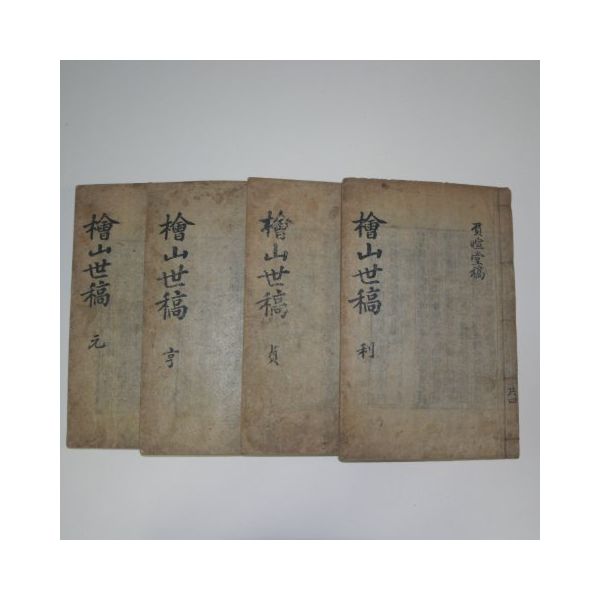 檜山世稿
元
檜山世稿
亨
檜山世稿
貞
檜山世稿
利
負暄堂稿
共四